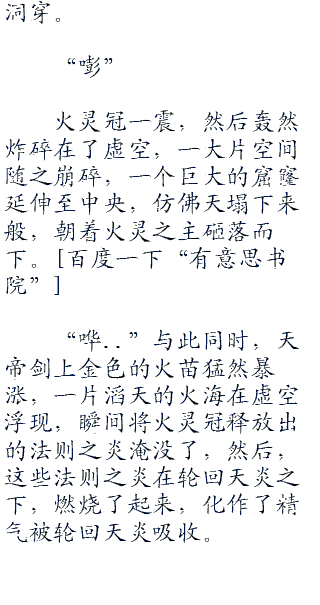 洞穿。
“嘭”
火灵冠一震，然后轰然
炸碎在了虚空，一大片空间
随之崩碎，一个巨大的窟窿
延伸至中央，仿佛天塌下来
般，朝着火灵之主砸落而
下。[百度一下“有意思书
院”]
“哗..”与此同时，天
帝剑上金色的火苗猛然暴
涨，一片滔天的火海在虚空
浮现，瞬间将火灵冠释放出
的法则之炎淹没了，然后，
这些法则之炎在轮回天炎之
下，燃烧了起来，化作了精
气被轮回天炎吸收。